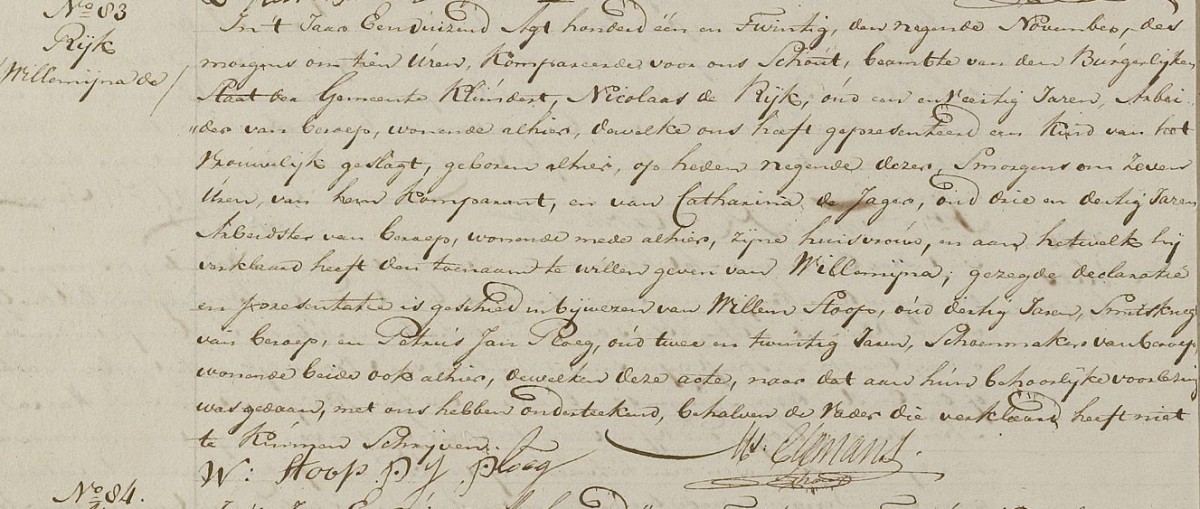 No 83
Rijk
Willemijna de
In 't Jaar Eenduizend Agt honderd één en Twintig, den negende November, des
morgens om tien Uren, Kompareerde voor ons Schout, beambte van den Burgerlijken
Staat der Gemeente Klundert, Nicolaas de Rijk, oud een en Veertig Jaren, Arbei-
"der van beroep, wonende alhier, dewelke ons heeft gepresenteerd een Kind van het
Vrouwelijk geslagt, geboren alhier, op heden negende dezer, Smorgens om Zeven
Uren, van hem Komparant, en van Catharina de Jager, oud drie en dertig Jaren
Arbeidster van beroep, wonende mede alhier, zijne huisvrouw, en aan hetwelk hij
verklaard heeft den toenaam te willen geven van Willemijna; gezegde declaratie
en presentatie is geschied in bijwezen van Willem Stoop, oud dertig Jaren, Smitsknegt
van beroep, en Petrus Jan Ploeg, oud twee en twintig Jaren, Schoenmaker van beroep
wonende beide ook alhier, dewelken deze acte, naar dat aan hun behoorlijke voorlezing
was gedaan, met ons hebben onderteekend, behalven de Vader die verklaard heeft niet
te Kunnen Schrijven.
W: Stoop P J Ploeg
No 84.